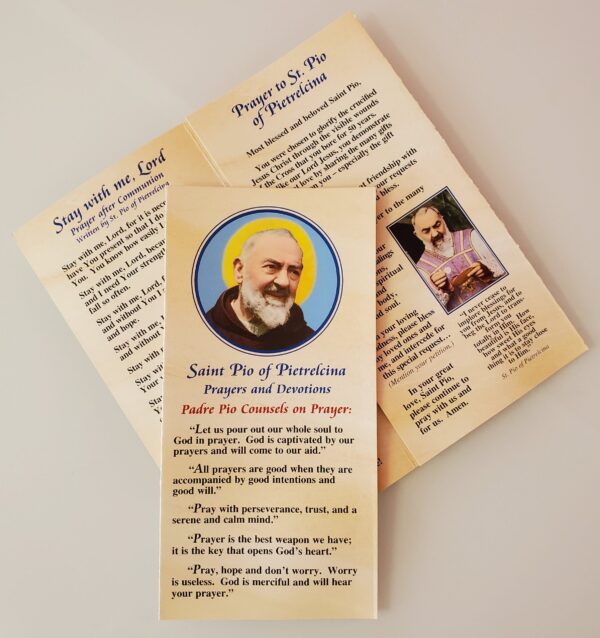 Saint Pio of Pietrelcina
Prayers and Devotions
Padre Pio Counsels on Prayer:
"Let us pour out our whole soul to
God in prayer. God is captivated by our
prayers and will come to our aid."
"All prayers are good when they are
accompanied by good intentions and
good will."
"Pray with perseverance, trust, and a
serene and calm mind."
"Prayer is the best weapon we have;
it is the key that opens God's heart."
"Pray, hope and don't worry. Worry
is useless. God is merciful and will hear
your prayer."
Stay with me, Lord
Prayer after Communion
Written by St. Pio of Pietrelcina
Stay with me, Lord, for it is
have You present so that I do
You. You know how easily I
Stay with me, Lord,
and I need Your
fall so often.
Stay with me, Lord,
and without You I
and hope.
Stay with me,
and without
Stay with
Stay with
Stay
Prayer to St. Pio
of Pietrelcina
Most blessed and beloved Saint Pio,
You were chosen to glorify the crucified
Jesus Christ through the visible wounds
of the Cross that you bore for 50 years.
like our Lord Jesus, you demonstrate
love by sharing the many gifts
you – especially the gift
friendship with
our requests
bless.
to the many
spiritual
and
body,
soul.
your loving
please bless
loved ones and
me, and intercede for
this special request…
(Mention your petition.)
In your great
love, Saint Pio,
please continue to
pray with us and
for us. Amen.
"I never cease to
implore blessings for
you from Jesus, and to
beg the Lord to trans-
form you
totally in Him. How
beautiful His face,
how sweet His eyes
and what a good
thing it is to stay close
to Him.
St. Pio of Pietrelcina